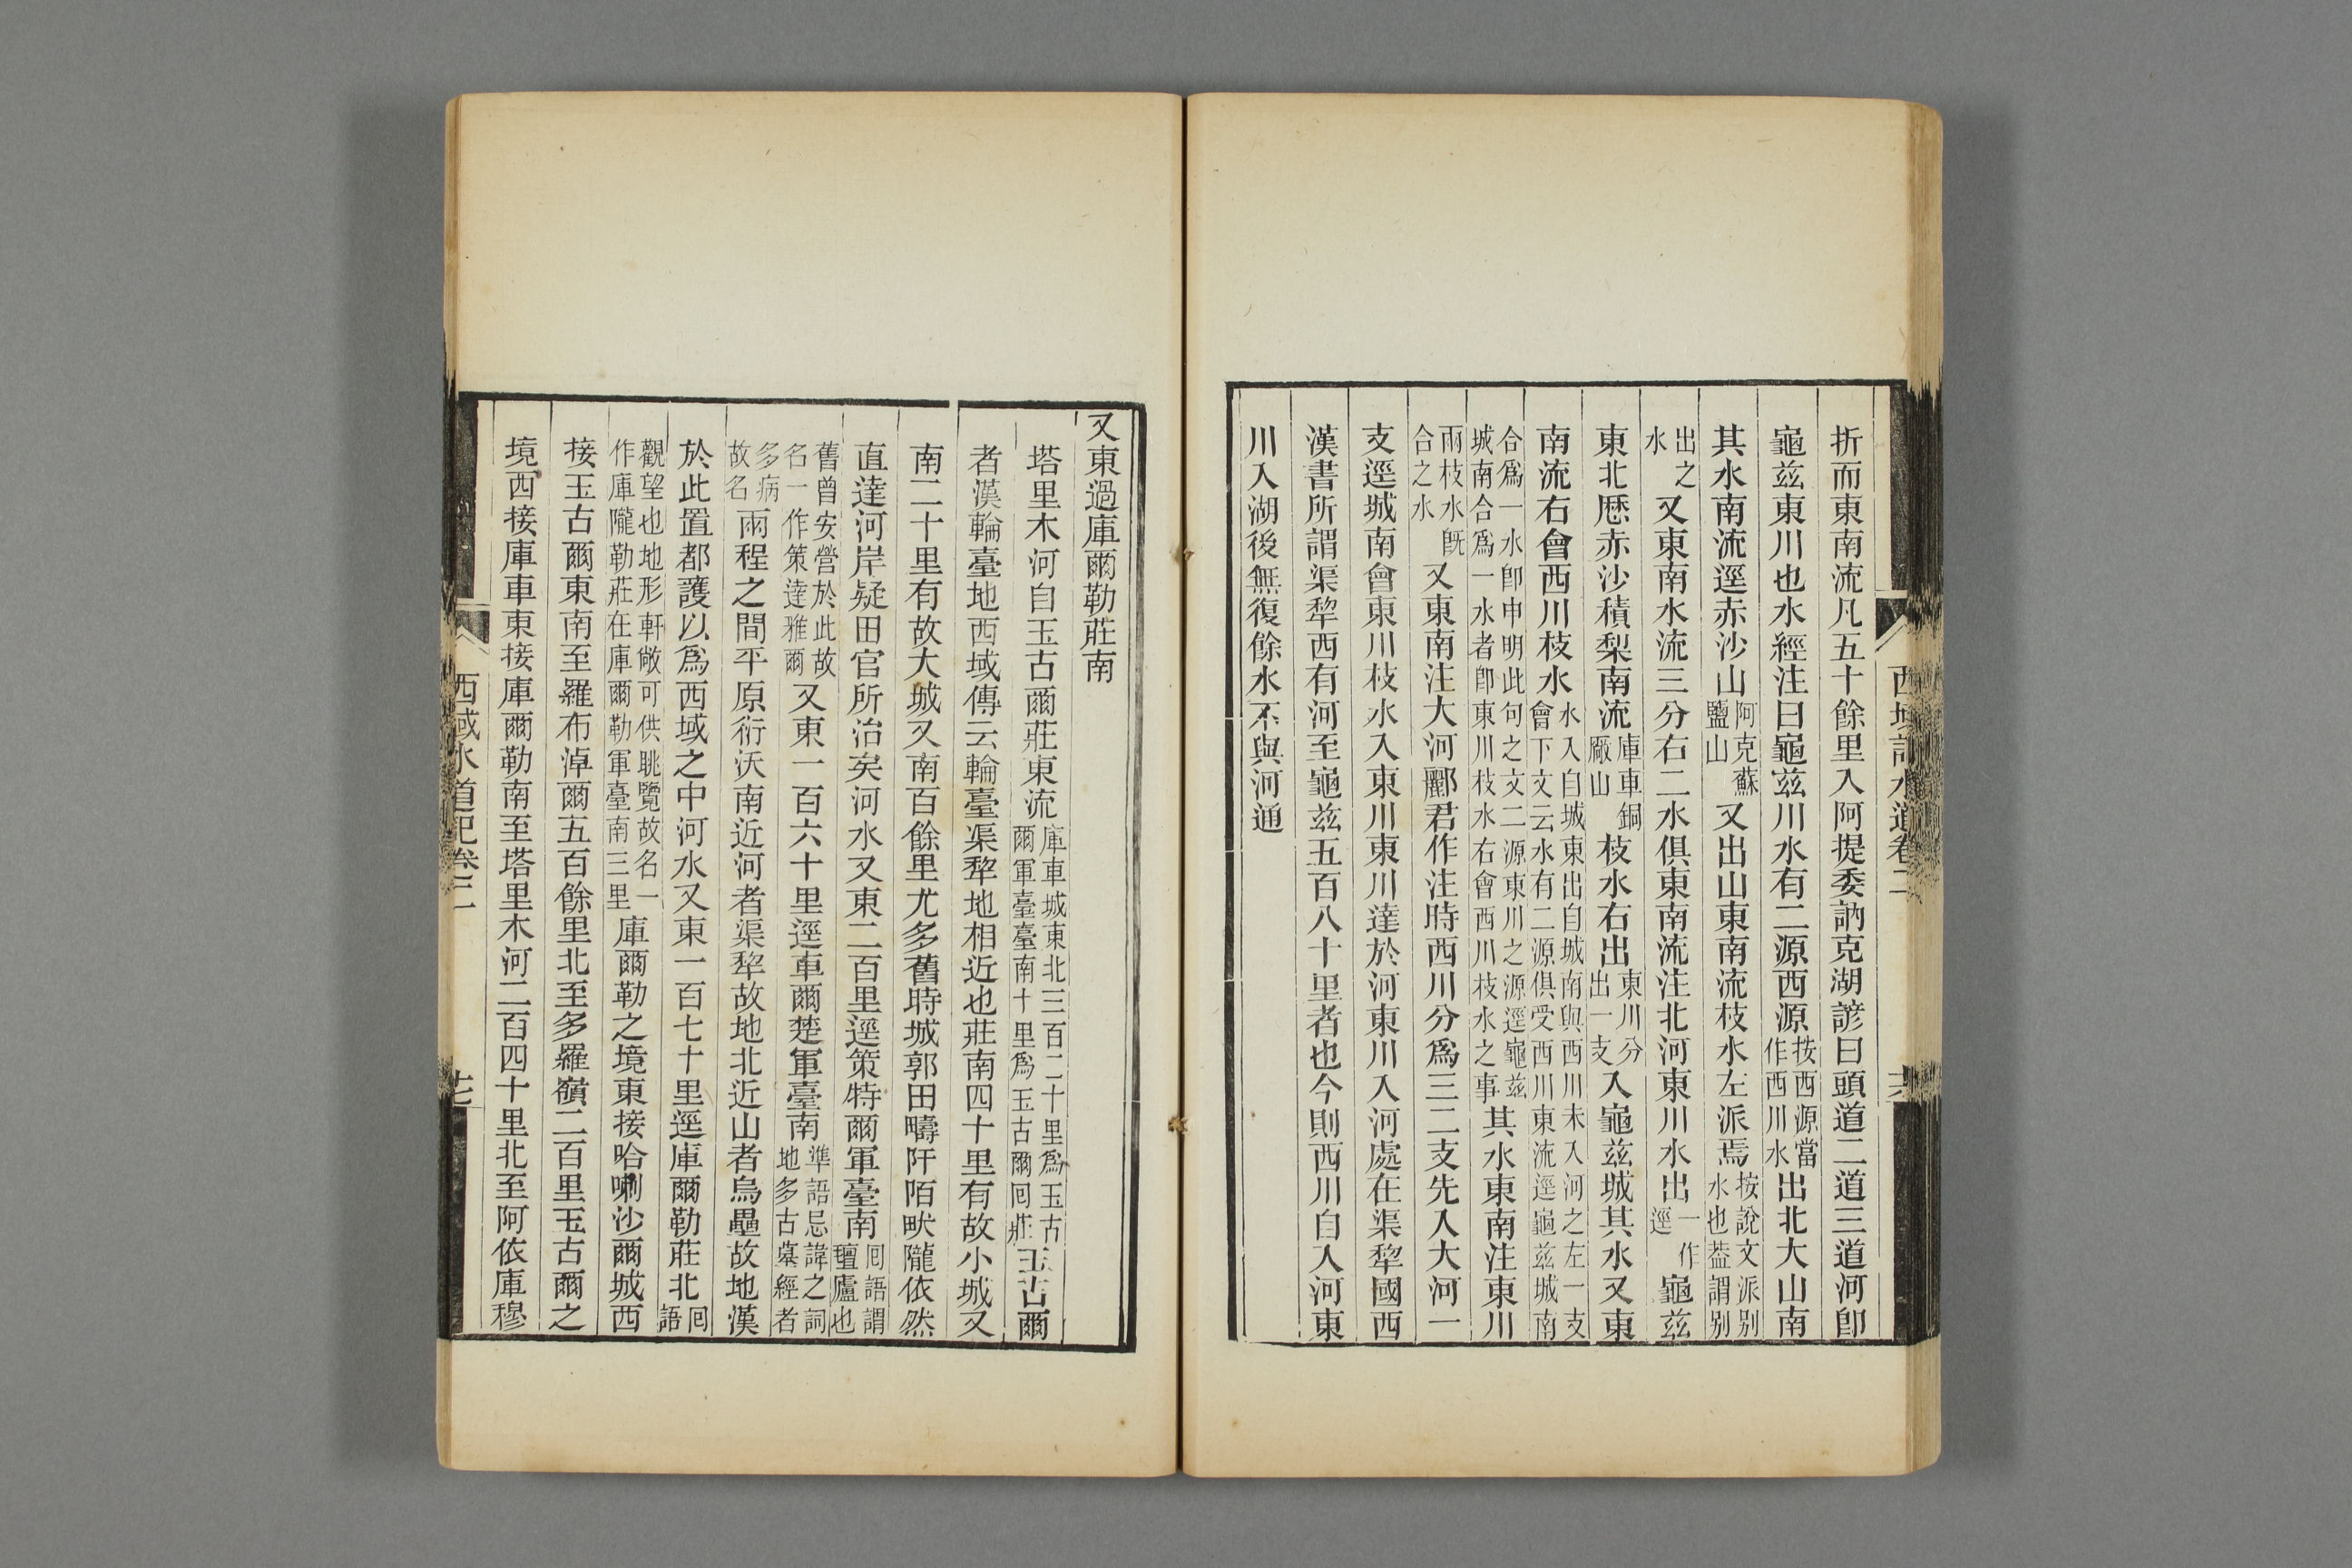 折而東南流凡五十餘里入阿提委訥克湖諺曰頭道二道三道河卽
龜茲東川也水經注曰龜茲川水有二源西源按西源當作西川水出北大山南
其水南流逕赤沙山阿克蘇鹽山又出山東南流枝水左派焉按說文派別水也葢謂别
出之水又東南水流三分右二水俱東南流注北河東川水出一作逕龜茲
東北歷赤沙積梨南流庫車銅廠山枝水右出東川分出一支入龜茲城其水又東
南流右會西川枝水水入自城東出自城南與西川未入河之左一支會下文云水有二源俱受西川東流逕龜茲城南
合爲一水卽申明此句之文二源東川之源逕龜茲城南合爲一水者卽東川枝水右會西川枝水之事其水東南注東川
兩枝水旣合之水又東南注大河酈君作注時西川分爲三二支先入大河一
支逕城南會東川枝水入東川東川達於河東川入河處在渠犂國西
漢書所謂渠犂西有河至龜茲五百八十里者也今則西川自入河東
川入湖後無復餘水不與河通
又東過庫爾勒莊南
塔里木河自玉古爾莊東流庫車城東北三百二十里爲玉古爾軍臺臺南十里爲玉古爾回莊玉古爾
者漢輪臺地西域傳云輪臺渠犂地相近也莊南四十里有故小城又
南二十里有故大城又南百餘里尤多舊時城郭田疇阡陌畎隴依然
直達河岸疑田官所治矣河水又東二百里逕策特爾軍臺南回語謂氊廬也
舊曾安營於此故名一作策達雅爾又東一百六十里逕車爾楚軍臺南準語忌諱之詞地多古墓經者
多病故名兩程之間平原衍沃南近河者渠犂故地北近山者烏壘故地漢
於此置都護以爲西域之中河水又東一百七十里逕庫爾勒莊北回語
觀望也地形軒敞可供眺覽故名一作庫隴勒莊在庫爾勒軍臺南三里庫爾勒之境東接哈喇沙爾城西
接玉古爾東南至羅布淖爾五百餘里北至多羅嶺二百里玉古爾之
境西接庫車東接庫爾勒南至塔里木河二百四十里北至阿依庫穆
西域水道記卷二